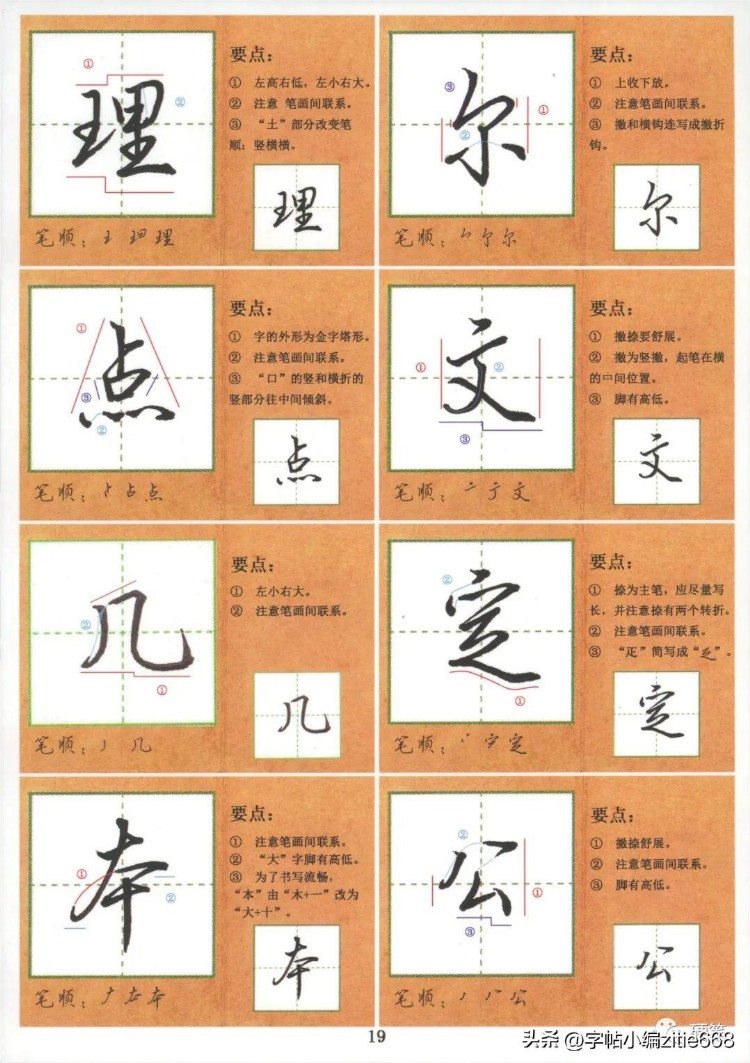 理
要点：
① 左高右低，左小右大。
② 注意 笔画间联系。
③ “土”部分改变笔
顺：竖横横。
理
笔顺：
理
尔
要点：
① 上收下放。
② 注意笔画间联系。
③ 撇和横钩连写成撇折
钩。
尔
笔顺：
尔
点
要点：
① 字的外形为金字塔形。
② 注意笔画间联系。
③ “口”的竖和横折的
竖部分往中间倾斜。
点
笔顺：
占点
文
要点：
① 撇捺要舒展。
② 撇为竖撇，起笔在横
的中间位置。
③ 脚有高低。
文
笔顺：
文
几
要点：
① 左小右大。
② 注意笔画间联系。
几
笔顺：丿 几
定
要点：
① 捺为主笔，应尽量写
长，并注意捺有两个转折。
② 注意笔画间联系。
定
笔顺：
定
本
要点：
① 注意笔画间联系。
② “大”字脚有高低。
③ 为了书写流畅，
“本”由“木+一”改为
“大+十”。
本
笔顺：
本
公
要点：
① 撇捺舒展。
② 注意笔画间联系。
③ 脚有高低。
公
笔顺：
公
19
头条 @字帖小编zitie668